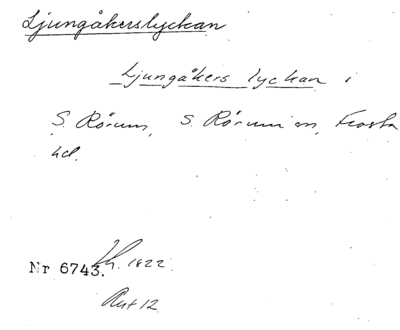 Ljungåkerslyckan
Ljungåkers lyckan i
S. Rörum, S. Rörum sn, Frosta
hd.
Nr 6743. Lh. 1822.
Rut 12